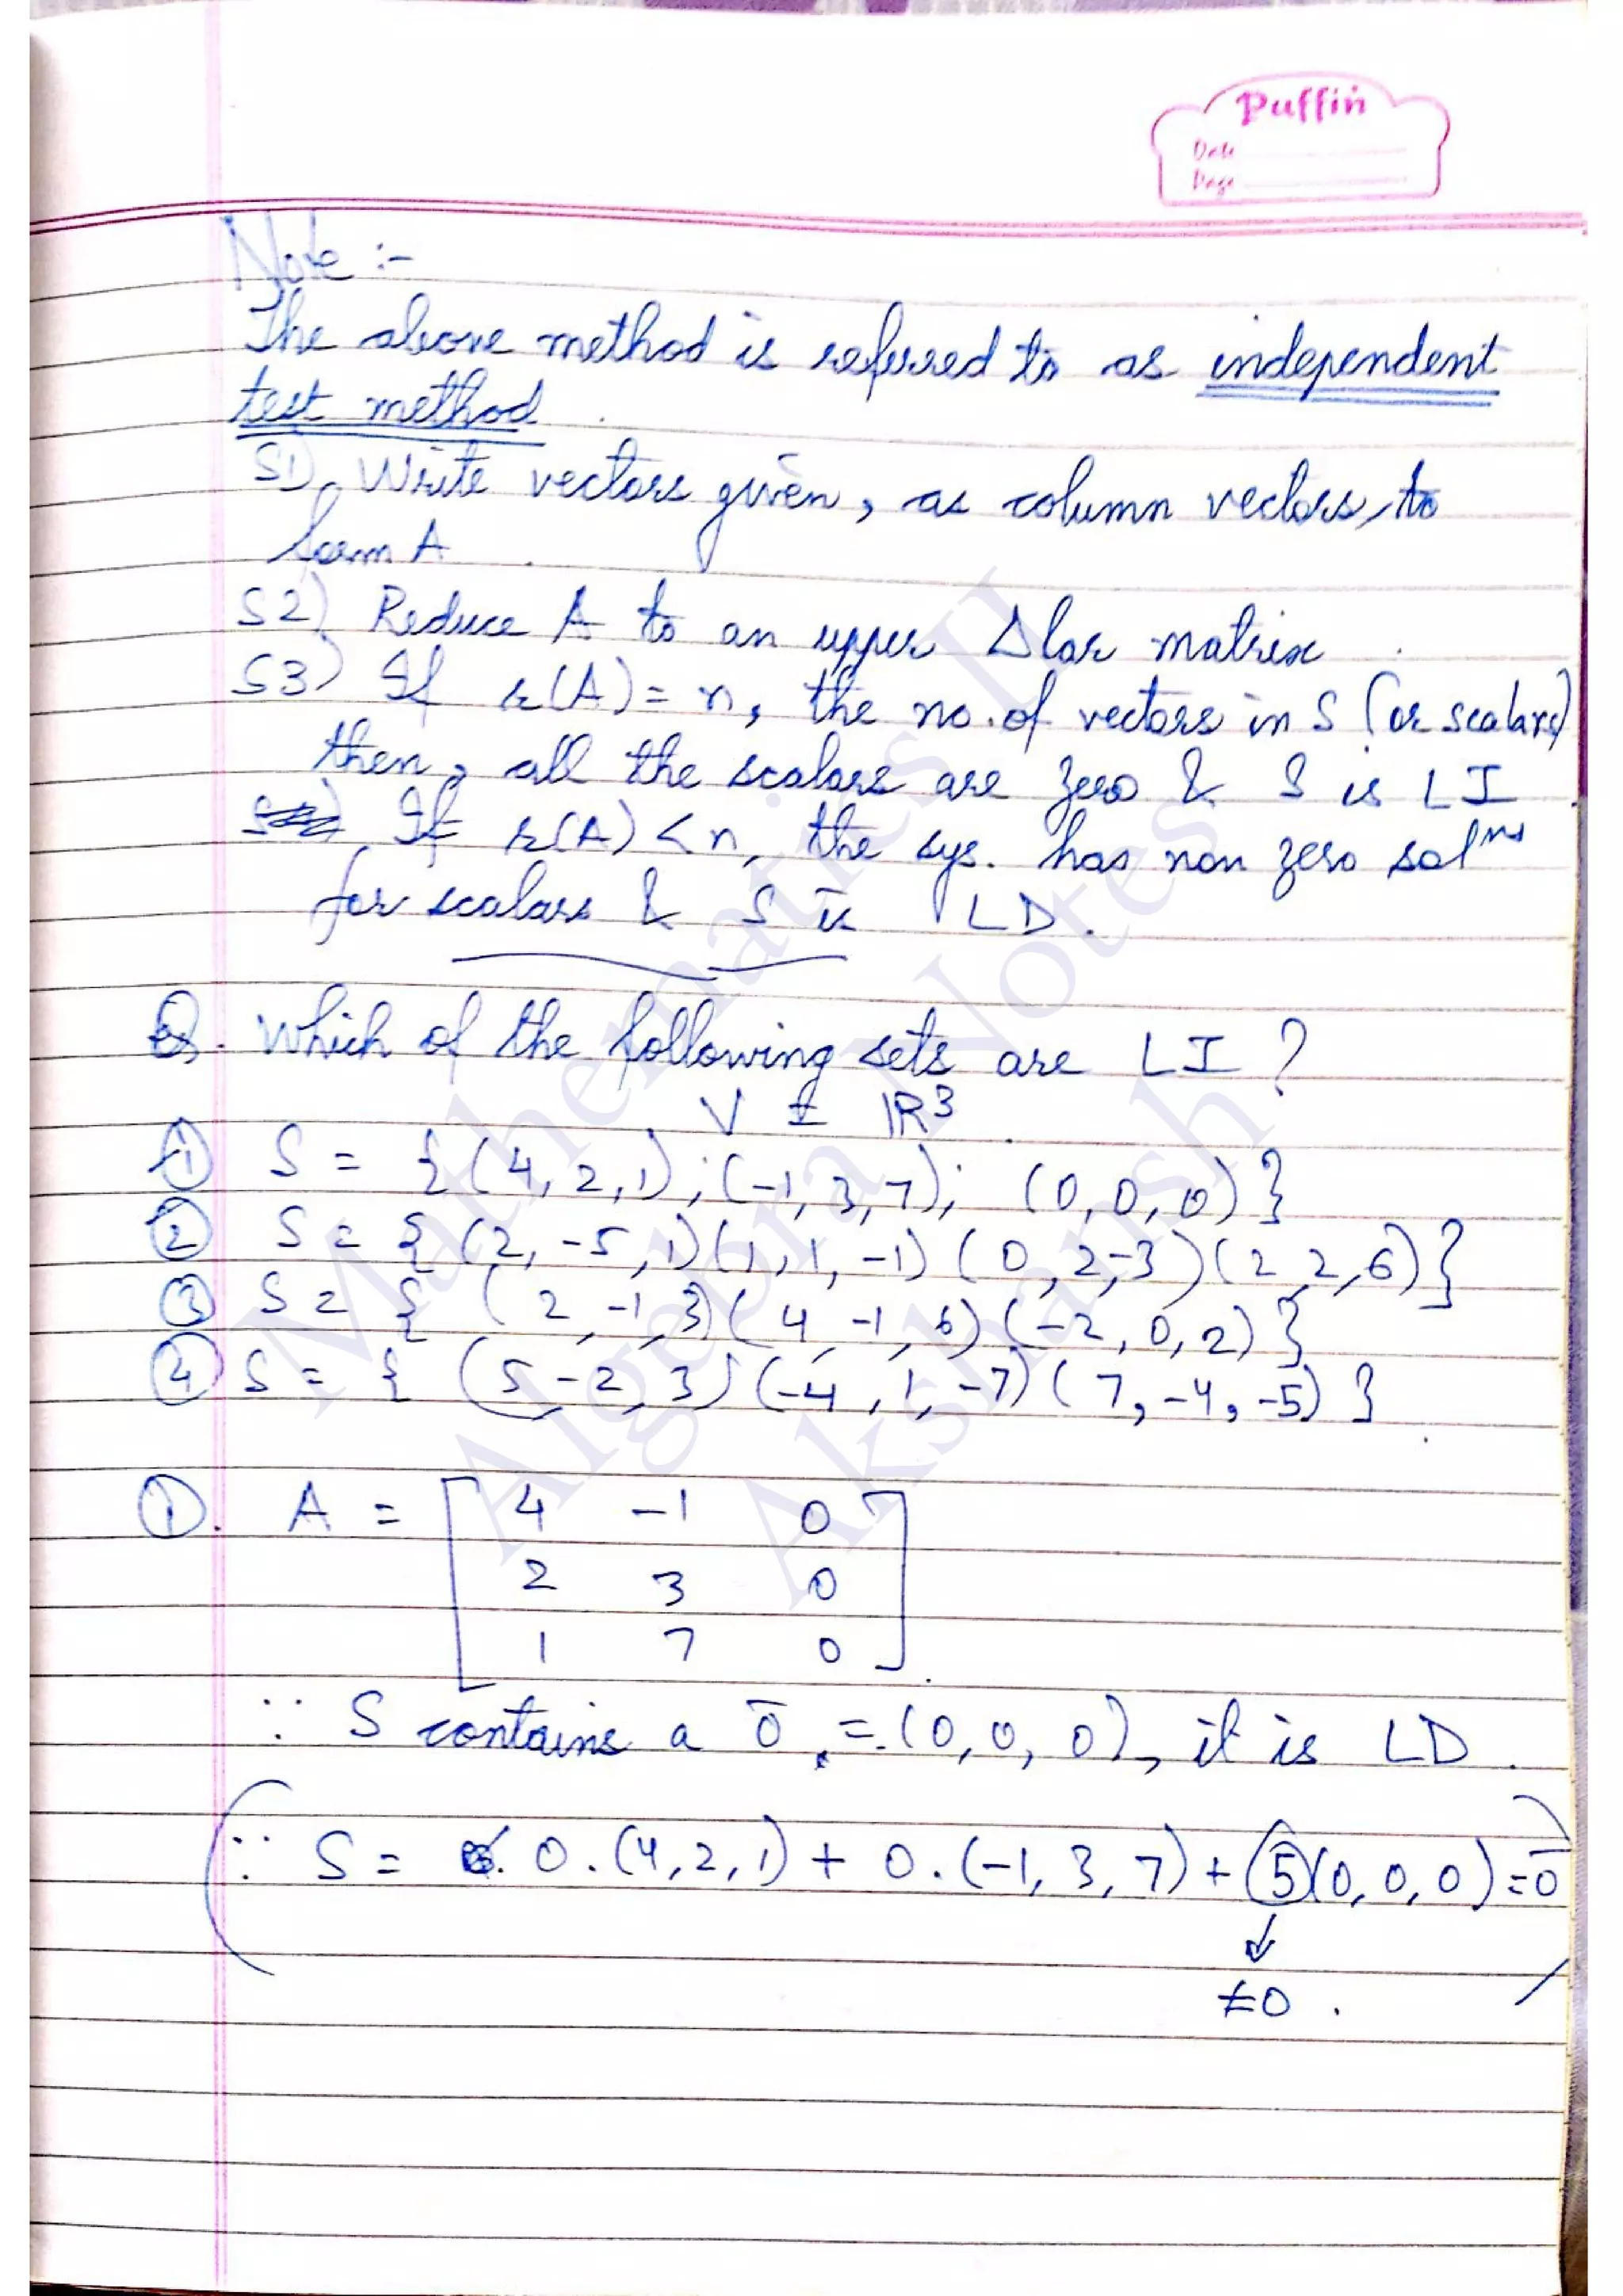 Puffin
Date
Page
Note :-
The above method is referred to as independent
test method.
S1) Write vectors given, as column vectors, to
form A.
S2) Reduce A to an upper Δlar matrix.
S3) If r(A) = n, the no. of vectors in S (or scalars)
then, all the scalars are zero & S is LI.
If r(A) < n, the sys. has non zero solⁿˢ
for scalars & S is LD.
Q. Which of the following sets are LI ?
V = ℝ³.
① S = {(4, 2, 1); (-1, 3, 7); (0, 0, 0)}
② S = {(2, -5, 1) (1, 1, -1) (0, 2, -3) (2, 2, 6)}
③ S = {(2, -1, 3) (4, -1, 6) (-2, 0, 2)}
④ S = {(5, -2, 3) (-4, 1, -7) (7, -4, -5)}
①. A = [ 4 -1 0
2 3 0
1 7 0 ].
∵ S contains a 0̄ = (0, 0, 0), it is LD.
(∵ S = 0.(4, 2, 1) + 0.(-1, 3, 7) + 5(0, 0, 0) = 0̄
↓
≠0. )
Mathematics II
Algebra Notes
Akshansh